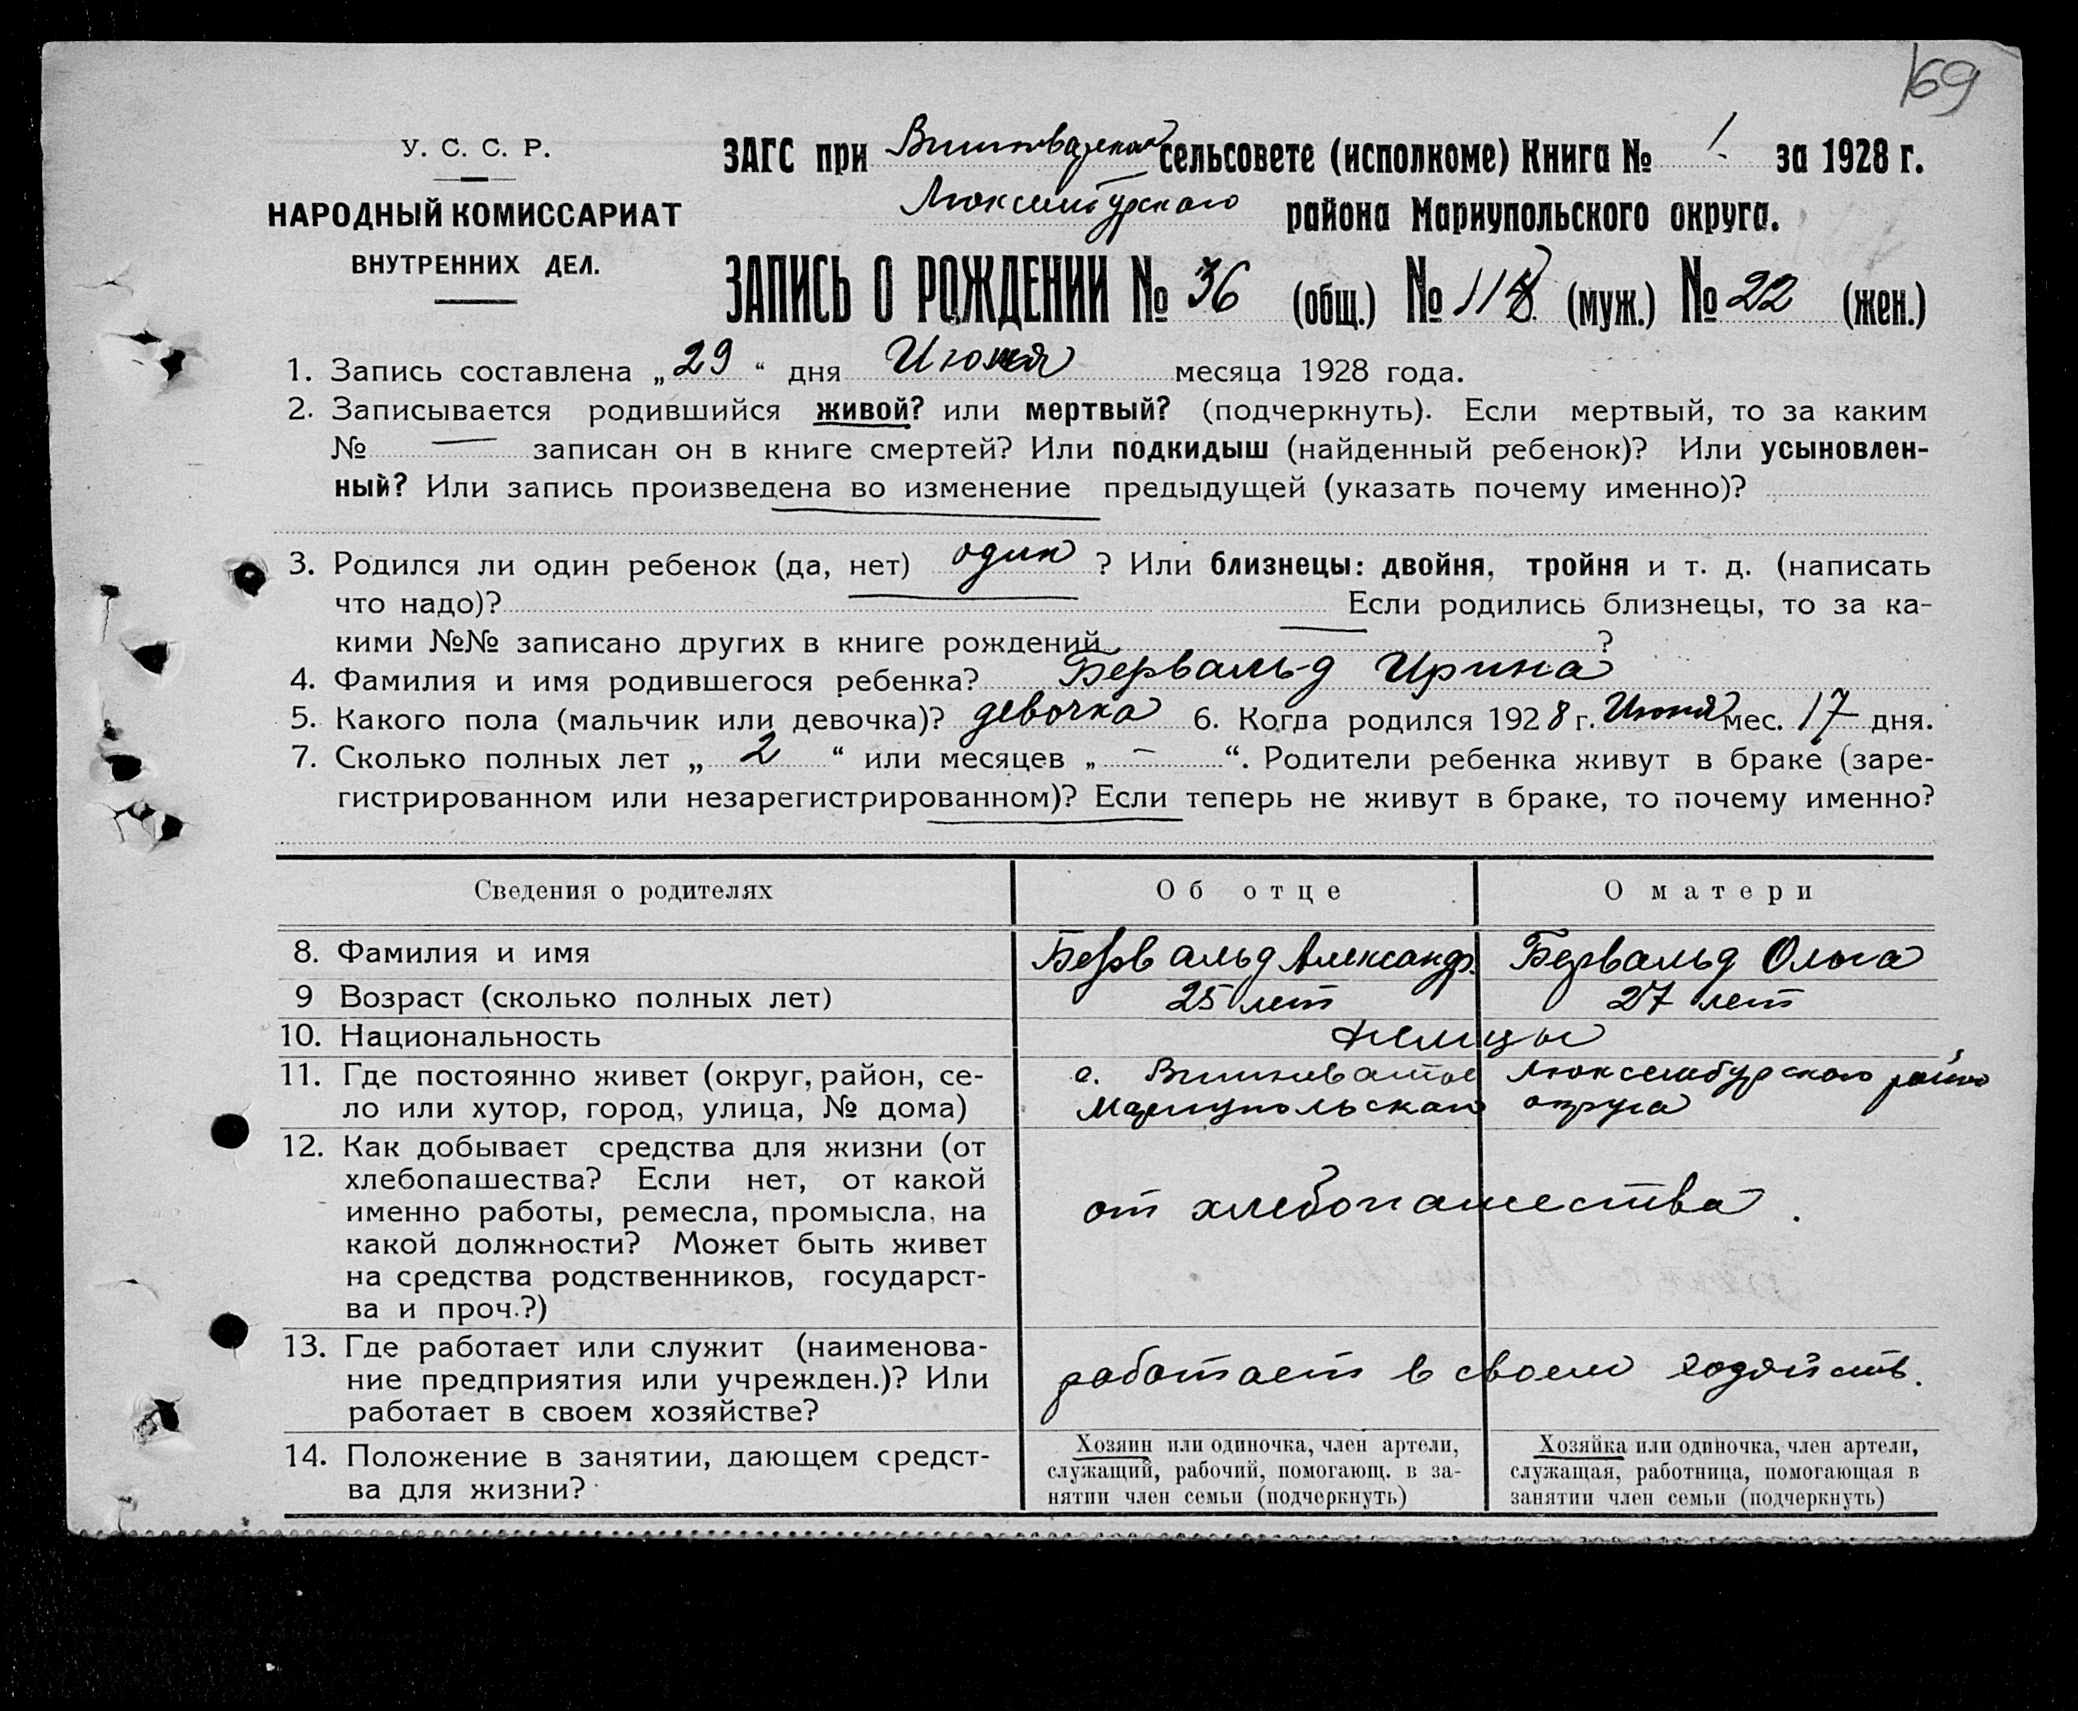 169
У. С. С. Р.
НАРОДНЫЙ КОМИССАРИАТ
ВНУТРЕННИХ ДЕЛ.
ЗАГС при сельсовете (исполкоме) Книга № 1. за 1928 г.
Люксембургского района Мариупольского округа.
ЗАПИСЬ О РОЖДЕНИИ № 36 (общ.) № (муж.) № 22 (жен.)
1. Запись составлена „ 29 “ дня месяца 1928 года.
2. Записывается родившийся живой? или мертвый? (подчеркнуть). Если мертвый, то за каким
№ — записан он в книге смертей? Или подкидыш (найденный ребенок)? Или усыновлен-
ный? Или запись произведена во изменение предыдущей (указать почему именно)?
3. Родился ли один ребенок (да, нет) один ? Или близнецы: двойня, тройня и т. д. (написать
что надо)? Если родились близнецы, то за ка-
кими №№ записано других в книге рождений ?
4. Фамилия и имя родившегося ребенка? Бервальд Ирина
5. Какого пола (мальчик или девочка)? девочка 6. Когда родился 1928 г. Июня мес. 17 дня.
7. Сколько полных лет „ 2 “ или месяцев „ — “. Родители ребенка живут в браке (заре-
гистрированном или незарегистрированном)? Если теперь не живут в браке, то почему именно?
Сведения о родителях Об отце О матери
8. Фамилия и имя Бервальд Александр. Бервальд Ольга
9 Возраст (сколько полных лет) 25 лет 27 лет
10. Национальность немцы
11. Где постоянно живет (округ, район, се-
ло или хутор, город, улица, № дома)
с. Вишневатое Люксембургского район
Мариупольского округа
12. Как добывает средства для жизни (от
хлебопашества? Если нет, от какой
именно работы, ремесла, промысла, на
какой должности? Может быть живет
на средства родственников, государст-
ва и проч.?)
от хлебопашества.
13. Где работает или служит (наименова-
ние предприятия или учрежден.)? Или
работает в своем хозяйстве?
работает в своем хозяйств.
14. Положение в занятии, дающем средст-
ва для жизни?
Хозяин или одиночка, член артели,
служащий, рабочий, помогающ. в за-
нятии член семьи (подчеркнуть)
Хозяйка или одиночка, член артели,
служащая, работница, помогающая в
занятии член семьи (подчеркнуть)